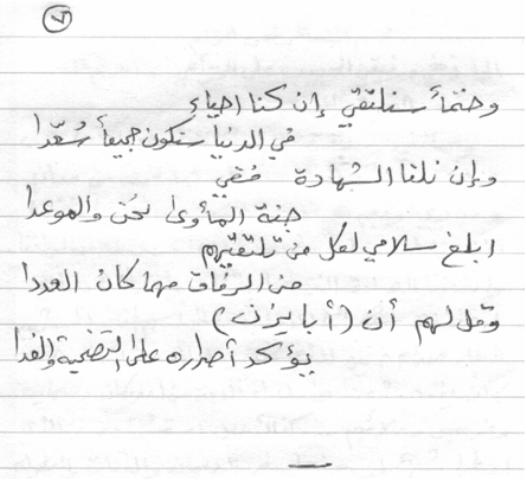 ٧
وحتماً سنلتقي إن كنا احياء
في الدنيا سنكون جميعاً سُعّدا
وإن نلنا الشهادة ففي
جنة المأوى نحن والموعدا
ابلغ سلامي لكل من تلتقيهم
من الرفاق مهما كان العددا
وقل لهم أن (أبا يزن)
يؤكد أصراره على التضحية والفدا